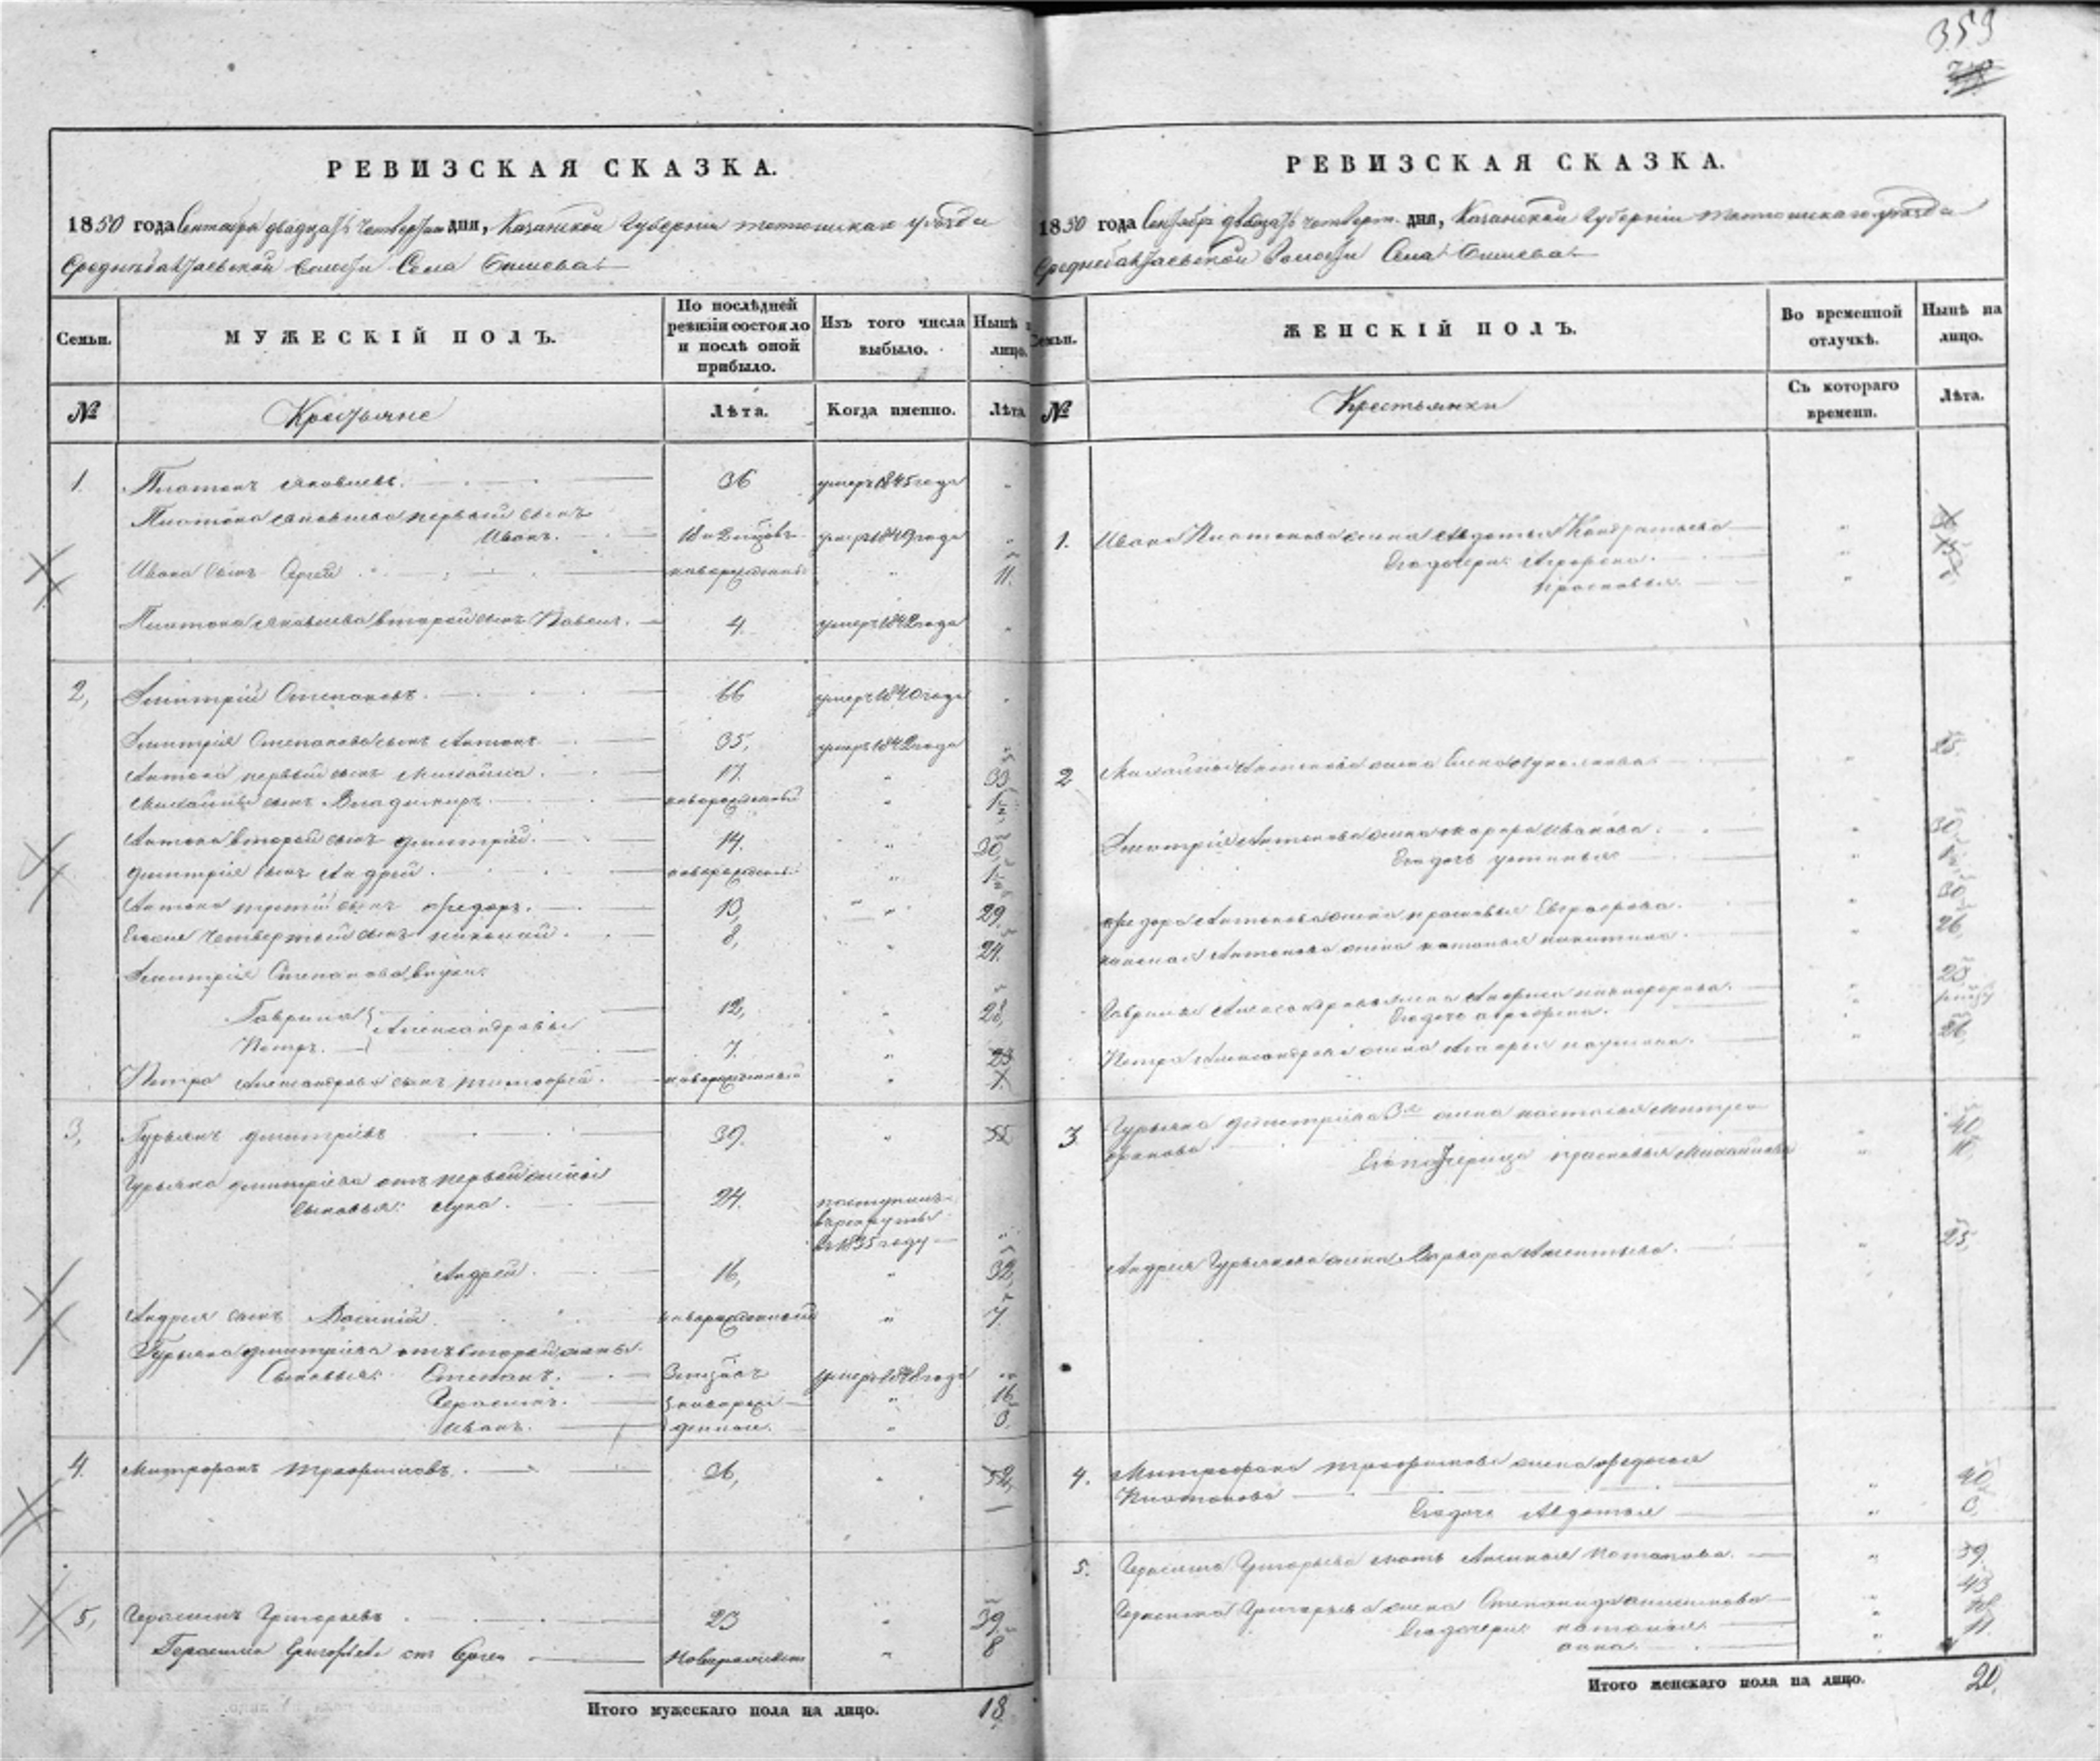 359
РЕВИЗСКАЯ СКАЗКА.
1850 года Сентября двадцать четвертаго дня, Казанской Губерніи Тетюшскаго уезда
Среднебалтаевской волости Села Бишева
Семьи.
МУЖЕСКІЙ ПОЛЪ.
По послѣдней ревизіи состояло и послѣ оной прибыло.
Изъ того числа выбыло.
Нынѣ на лицо.
№
Крестьяне
Лѣта.
Когда именно.
Лѣта
1. Платонъ Яковлевъ. 36 умеръ 1845 года
Платона Яковлева первый сынъ
Иванъ. умеръ 1849 года
Ивана сынъ Сергей новорожденный 11.
Платона Яковлева второй сынъ Павелъ. 4. умеръ 1842 года
2, Дмитрій Степановъ. 66 умеръ 1840 года
Дмитрія Степанова сынъ Антонъ. 35, умеръ 1842 года
Антона первый сынъ Михайла. 17. 33
Михайлы сынъ Владимиръ. новорожденный
Антона второй сынъ Дмитрій. 14. 30
Дмитрія сынъ Андрей. новорожденный
Антона третій сынъ Федоръ. 13, 29.
Его же четвертый сынъ Николай. 8, 24.
Дмитрія Степанова внуки:
Гаврила 12, 28,
Александровы
Петръ. 7. 23
Петра Александрова сынъ Тимофей. новорожденный
3, Гурьянъ Дмитріевъ 39. 55
Гурьяна Дмитріева отъ первой жены
сыновья: Лука. 24. поступилъ
въ рекруты
въ 1835 году
Андрей. 16, 32,
Андрея сынъ Василій. новорожденный 7
Гурьяна Дмитріева отъ второй жены
Сыновья: Степанъ. умеръ 1848 года
Герасимъ. новорож 16
Иванъ. денные.
4. Митрофанъ Трофимовъ. 52,
5, Герасимъ Григорьевъ 23 39.
Герасима Григорьева сынъ Сергей Новорожденный 8
Итого мужескаго пола на лицо. 18
РЕВИЗСКАЯ СКАЗКА.
1850 года Сентября двадцать четверт. дня, Казанской Губерніи Тетюшскаго уезда
Среднебалтаевской Волости Села Бишева
Семьи.
ЖЕНСКІЙ ПОЛЪ.
Во временной отлучкѣ.
Нынѣ на лицо.
№
Крестьянки
Съ котораго времени.
Лѣта.
1. Ивана Платонова жена Авдотья Кондратьева
Его дочери: Аграфена.
Прасковья.
2 Михайлы Антонова жена Елена 25.
Дмитрія Антонова жена Марфа Иванова. 30
Его дочь Устинья
Федора Антонова жена Прасковья Евграфова. 30
Николая Антонова жена Наталья Никитина. 26,
Гаврилы Александрова жена Анфиса Никифорова. 23
Его дочь Аграфена.
Петра Александрова жена 26,
3. Гурьяна Дмитріева 2я жена Настасья Митро
фанова. 40
Его падчерица Прасковья Михайлова
Андрея Гурьянова жена Варвара 25,
4. Митрофана Трофимова жена Федосья
Платонова 40
Его дочь Авдотья
5. Герасима Григорьева мать Акулина Потапова. 59
Герасима Григорьева жена Степанида 43
Его дочери: Наталья.
Анна. 11.
Итого женскаго пола на лицо. 20.